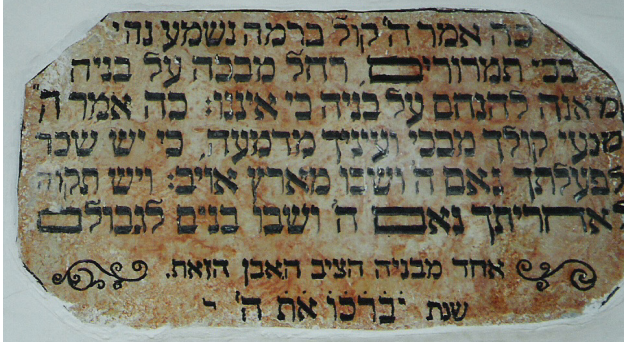 כה אמר ה' קול ברמה נשמע נהי
בכי תמרורים רחל מבכה על בניה
מאנה להנחם על בניה כי איננו: כה אמר ה'
מנעי קולך מבכי ועיניך מדמעה, כי יש שכר
לפעלתך נאם ה' ושבו מארץ אויב: ויש תקוה
לאחריתך נאם ה' ושבו בנים לגבולם
אחד מבניה הציב האבן הזאת.
שנת יברכו את ה' י